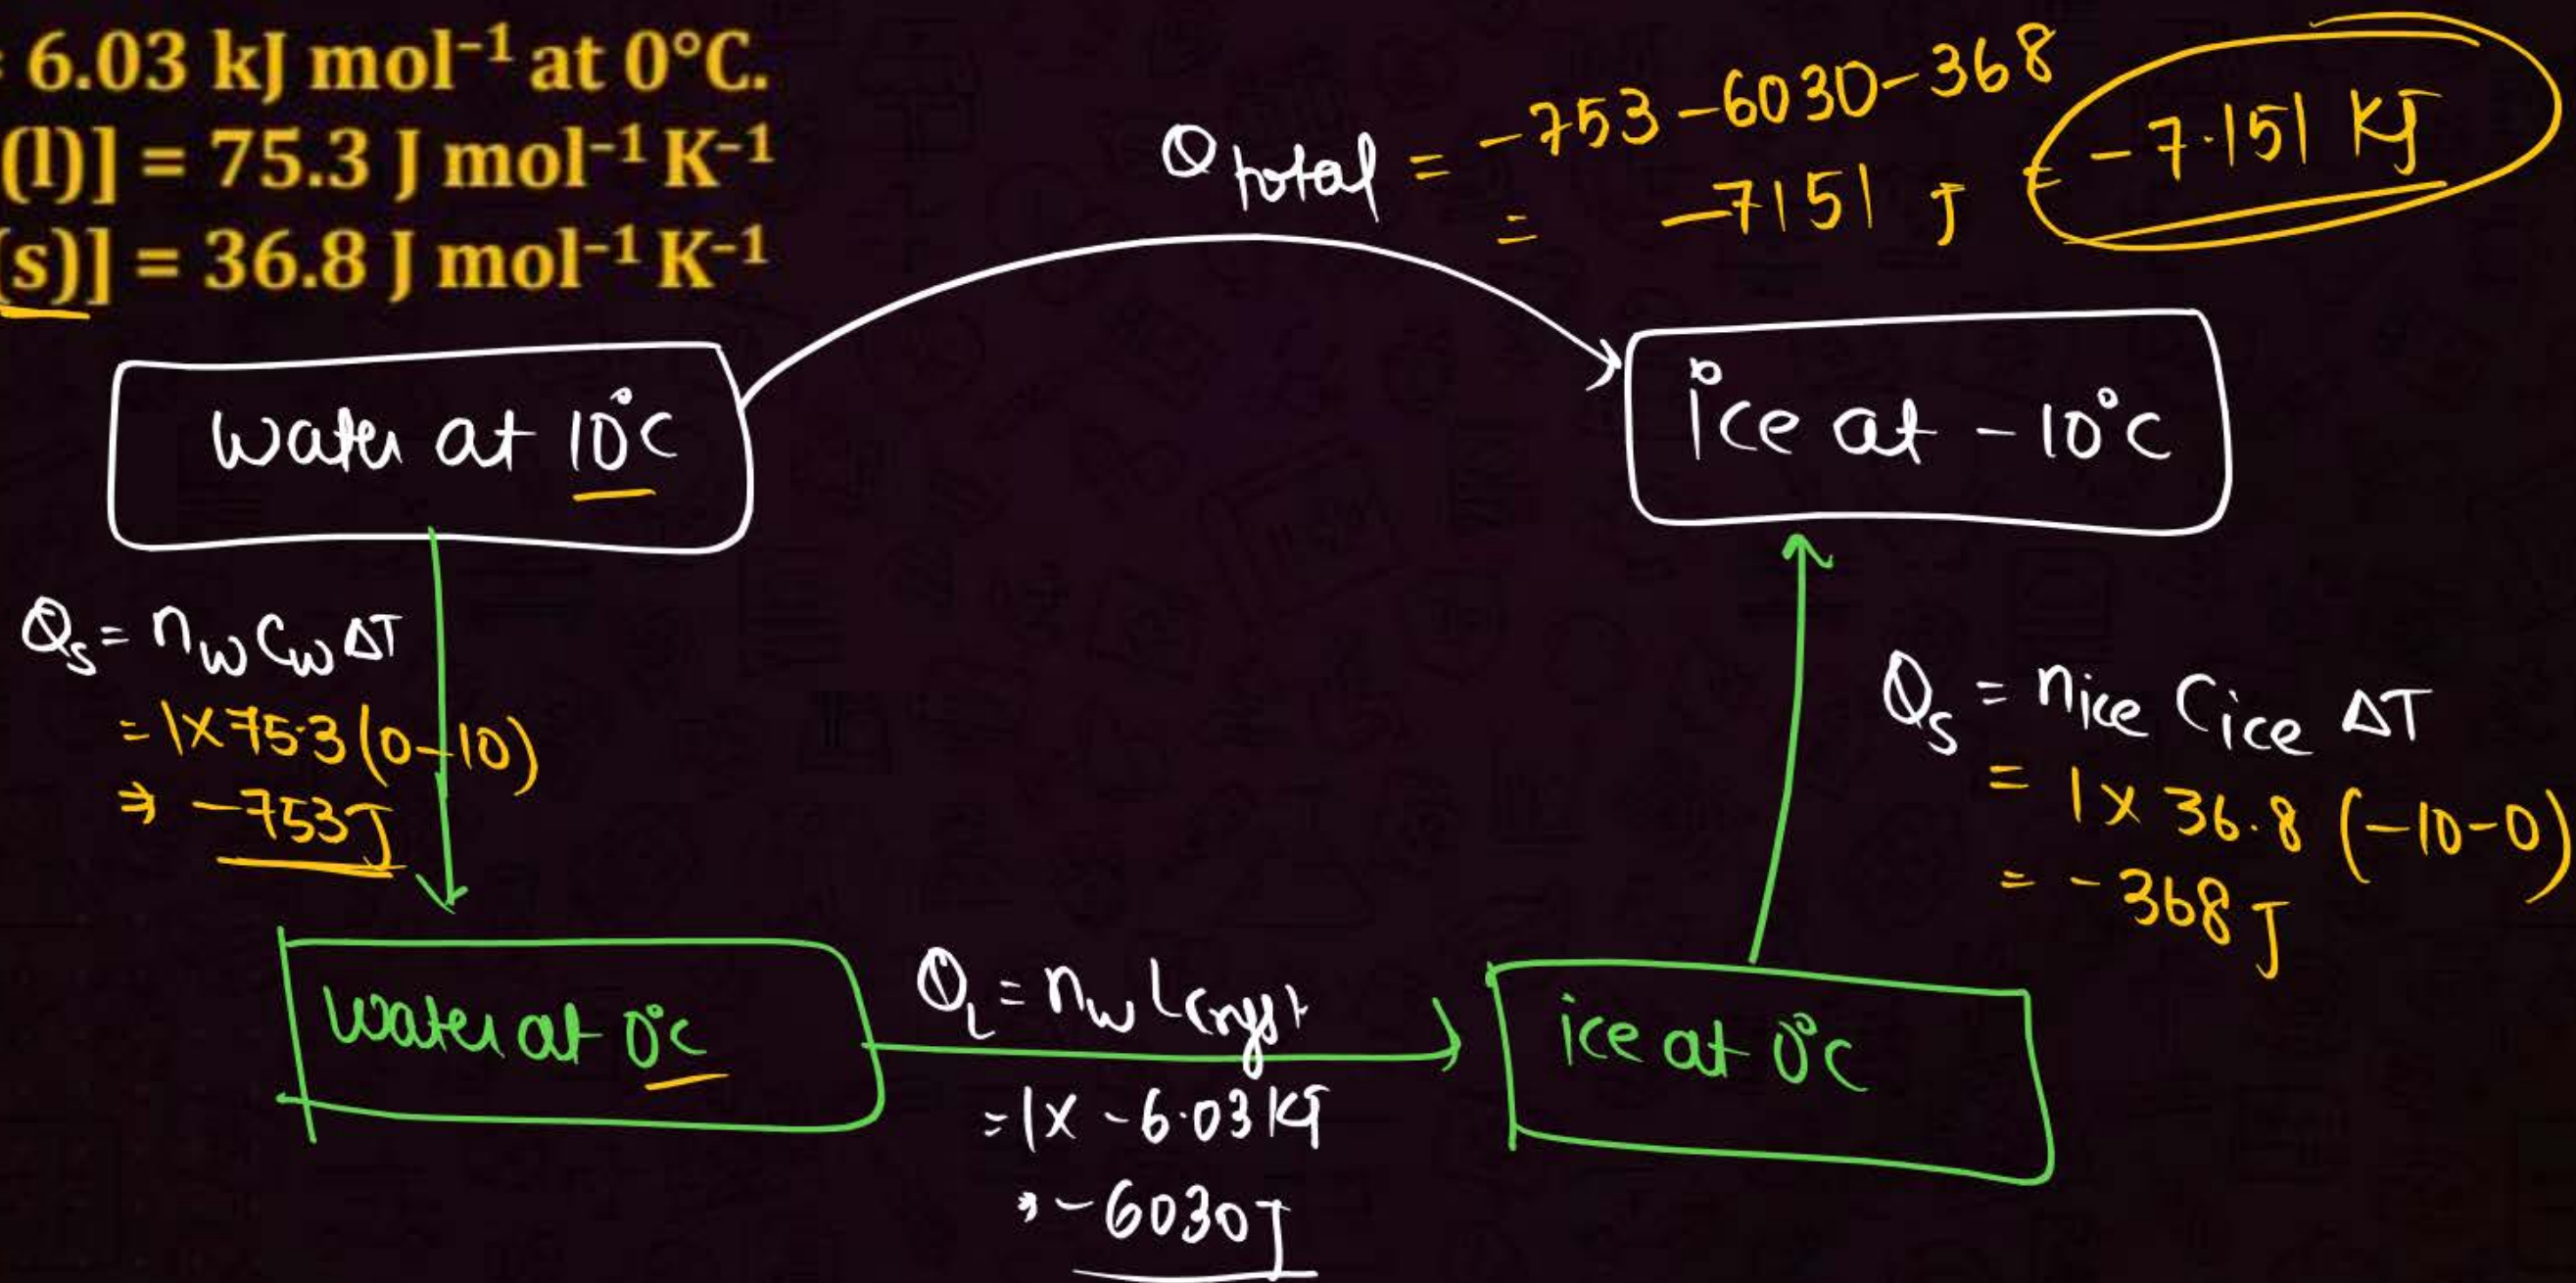 = 6.03 kJ mol⁻¹ at 0°C.
(l)] = 75.3 J mol⁻¹ K⁻¹
(s)] = 36.8 J mol⁻¹ K⁻¹
Q total = -753-6030-368
= -7151 J = -7.151 KJ
water at 10°C
ice at -10°C
Qs = nw Cw ΔT
= 1×75.3(0-10)
⇒ -753J
Qs = nice Cice ΔT
= 1 × 36.8 (-10-0)
= -368 J
water at 0°C
QL = nw Lcryst
= 1× -6.03 KJ
⇒ -6030J
ice at 0°C